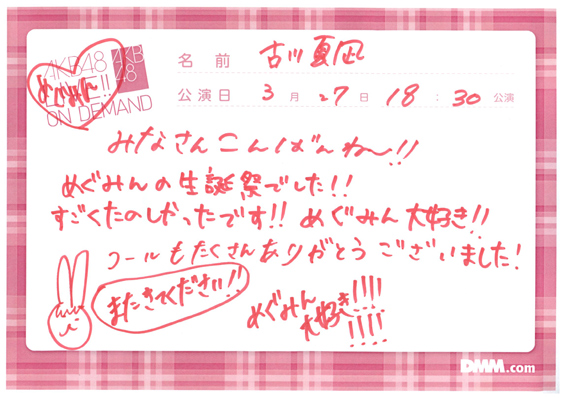 AKB48 LIVE!! ON DEMAND
AKB48
めぐみん
名前 古川夏凪
公演日 3月27日 18:30公演
みなさんこんばんわ〜!!
めぐみんの生誕祭でした!!
すごくたのしかったです!! めぐみん大好き!!
コールもたくさんありがとうございました!
またきてください!!
めぐみん
大好き!!!!
!!!!
DMM.com